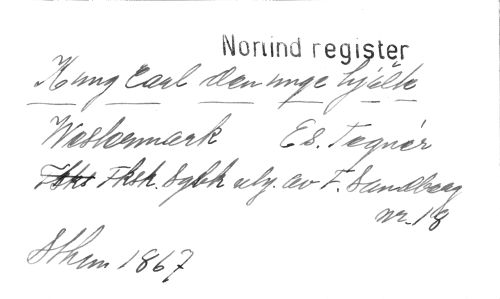 Norlind register
Kung Carl den unge hjälte
Westermark Es. Tegnér
Fksk. Sgbk utg. av F. Sandberg
nr. 18
Sthm 1867